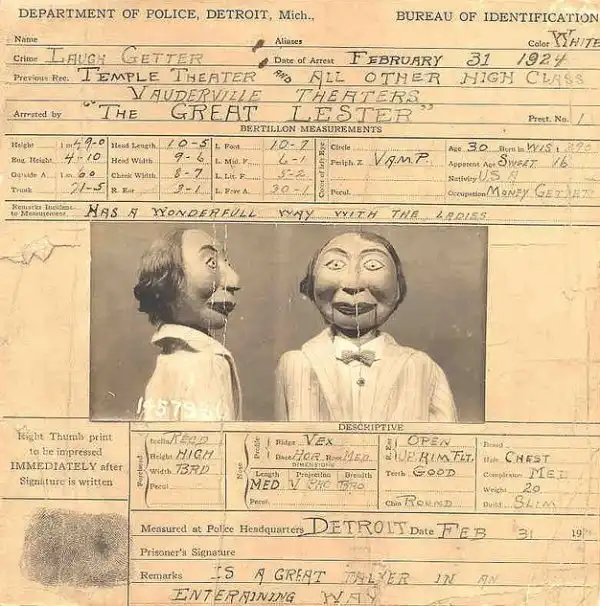 DEPARTMENT OF POLICE, DETROIT, Mich., BUREAU OF IDENTIFICATION
Name Aliases Color WHITE
Crime LAUGH GETTER Date of Arrest FEBRUARY 31 1924
Previous Rec. TEMPLE THEATER AND ALL OTHER HIGH CLASS
VAUDERVILLE THEATERS
Arrested by "THE GREAT LESTER" Prect. No. 1
BERTILLON MEASUREMENTS
Height 1 m 49-0 Head Length 10-5 L. Foot 10-7 Circle Age 30 Born in WIS
Eng. Height 4-10 Head Width 9-6 L. Mid. F. 6-1 Periph. Z VAMP. Apparent Age SWEET 16
Outside A. 1 m 60 Cheek Width 8-7 L. Lit. F. 5-2 Nativity U.S.A
Trunk 71-5 R. Ear 3-1 L. Fore A. 30-1 Pecul. Occupation MONEY GETTER
Color of Left Eye
Remarks Incident to Measurement HAS A WONDERFULL WAY WITH THE LADIES
DESCRIPTIVE
Right Thumb print
to be impressed
IMMEDIATELY after
Signature is written
Forehead
Height HIGH
Width BRD
Pecul.
Nose
Profile
Ridge VEX
Base HOR. Root MED
DIMENSIONS
Length Projection Breadth
MED BRO
Pecul.
R. Ear
OPEN
UP. RIM FLT.
Teeth GOOD
Chin ROUND
Beard
Hair CHEST
Complexion MED
Weight 20
Build SLIM
Measured at Police Headquarters DETROIT Date FEB 31 19
Prisoner's Signature
Remarks IS A GREAT TALKER IN AN
ENTERAINING WAY